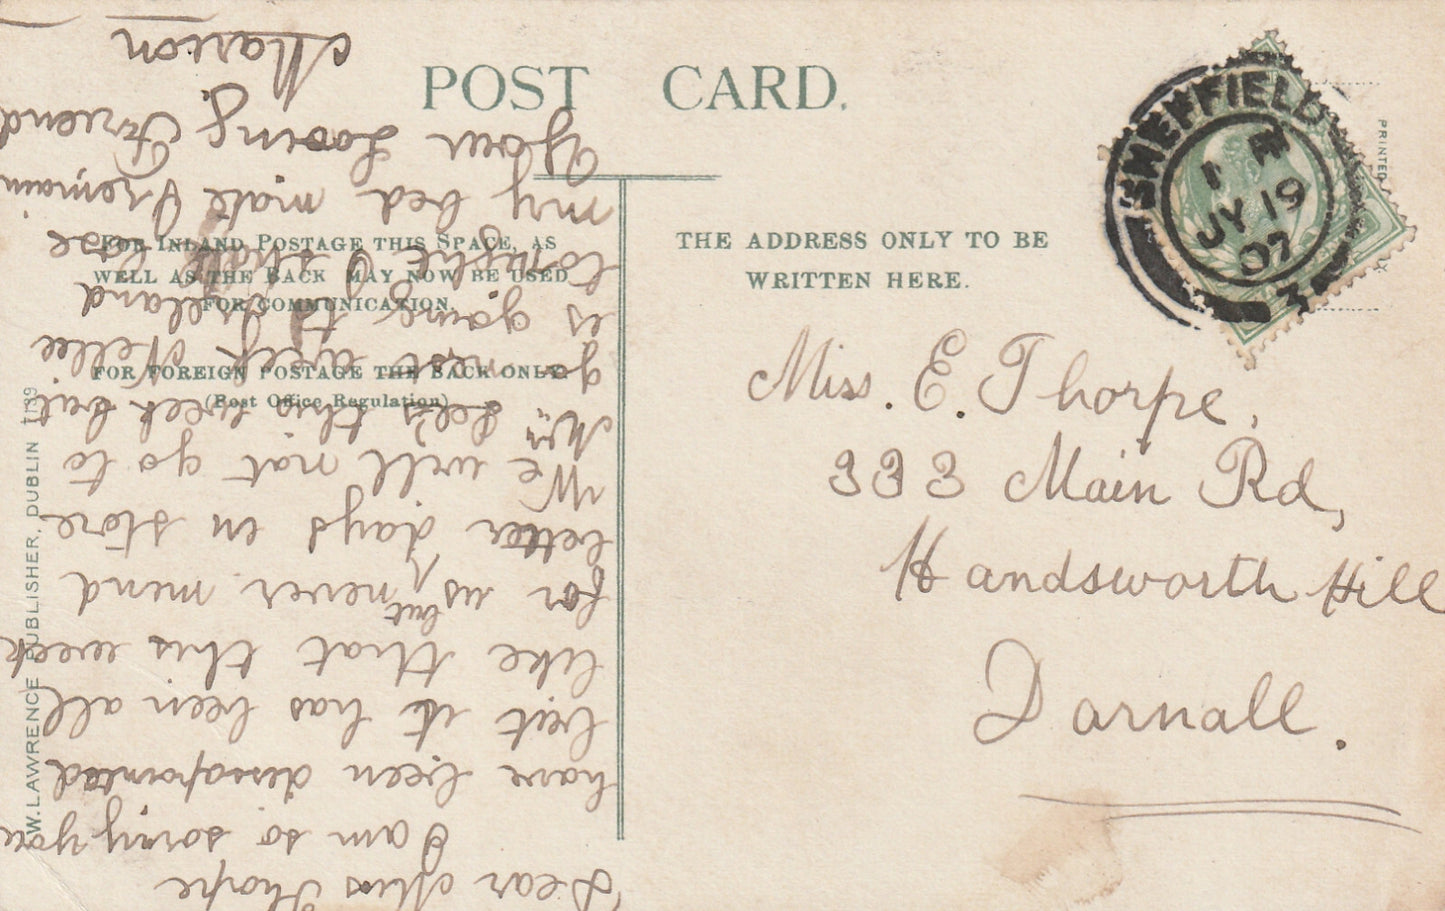 POST CARD.
FOR INLAND POSTAGE THIS SPACE, AS
WELL AS THE BACK MAY NOW BE USED
FOR COMMUNICATION.
FOR FOREIGN POSTAGE THE BACK ONLY.
(Post Office Regulation)
THE ADDRESS ONLY TO BE
WRITTEN HERE.
PRINTED
SHEFFIELD
1 E
JY 19
07
3
Miss. E. Thorpe,
333 Main Rd,
Handsworth Hill
Darnall.
W. LAWRENCE PUBLISHER, DUBLIN 1139
Dear Miss Thorpe
I am so sorry you
have been dissapointed
but it has been all
like that this week
for us, but never mind
better days in store
We will not go to
Mrs Lee's this week but
go next week Nellie
is going to Ireland
tonight I shall
my bed mate I remain
Your Loving Friend
Marion